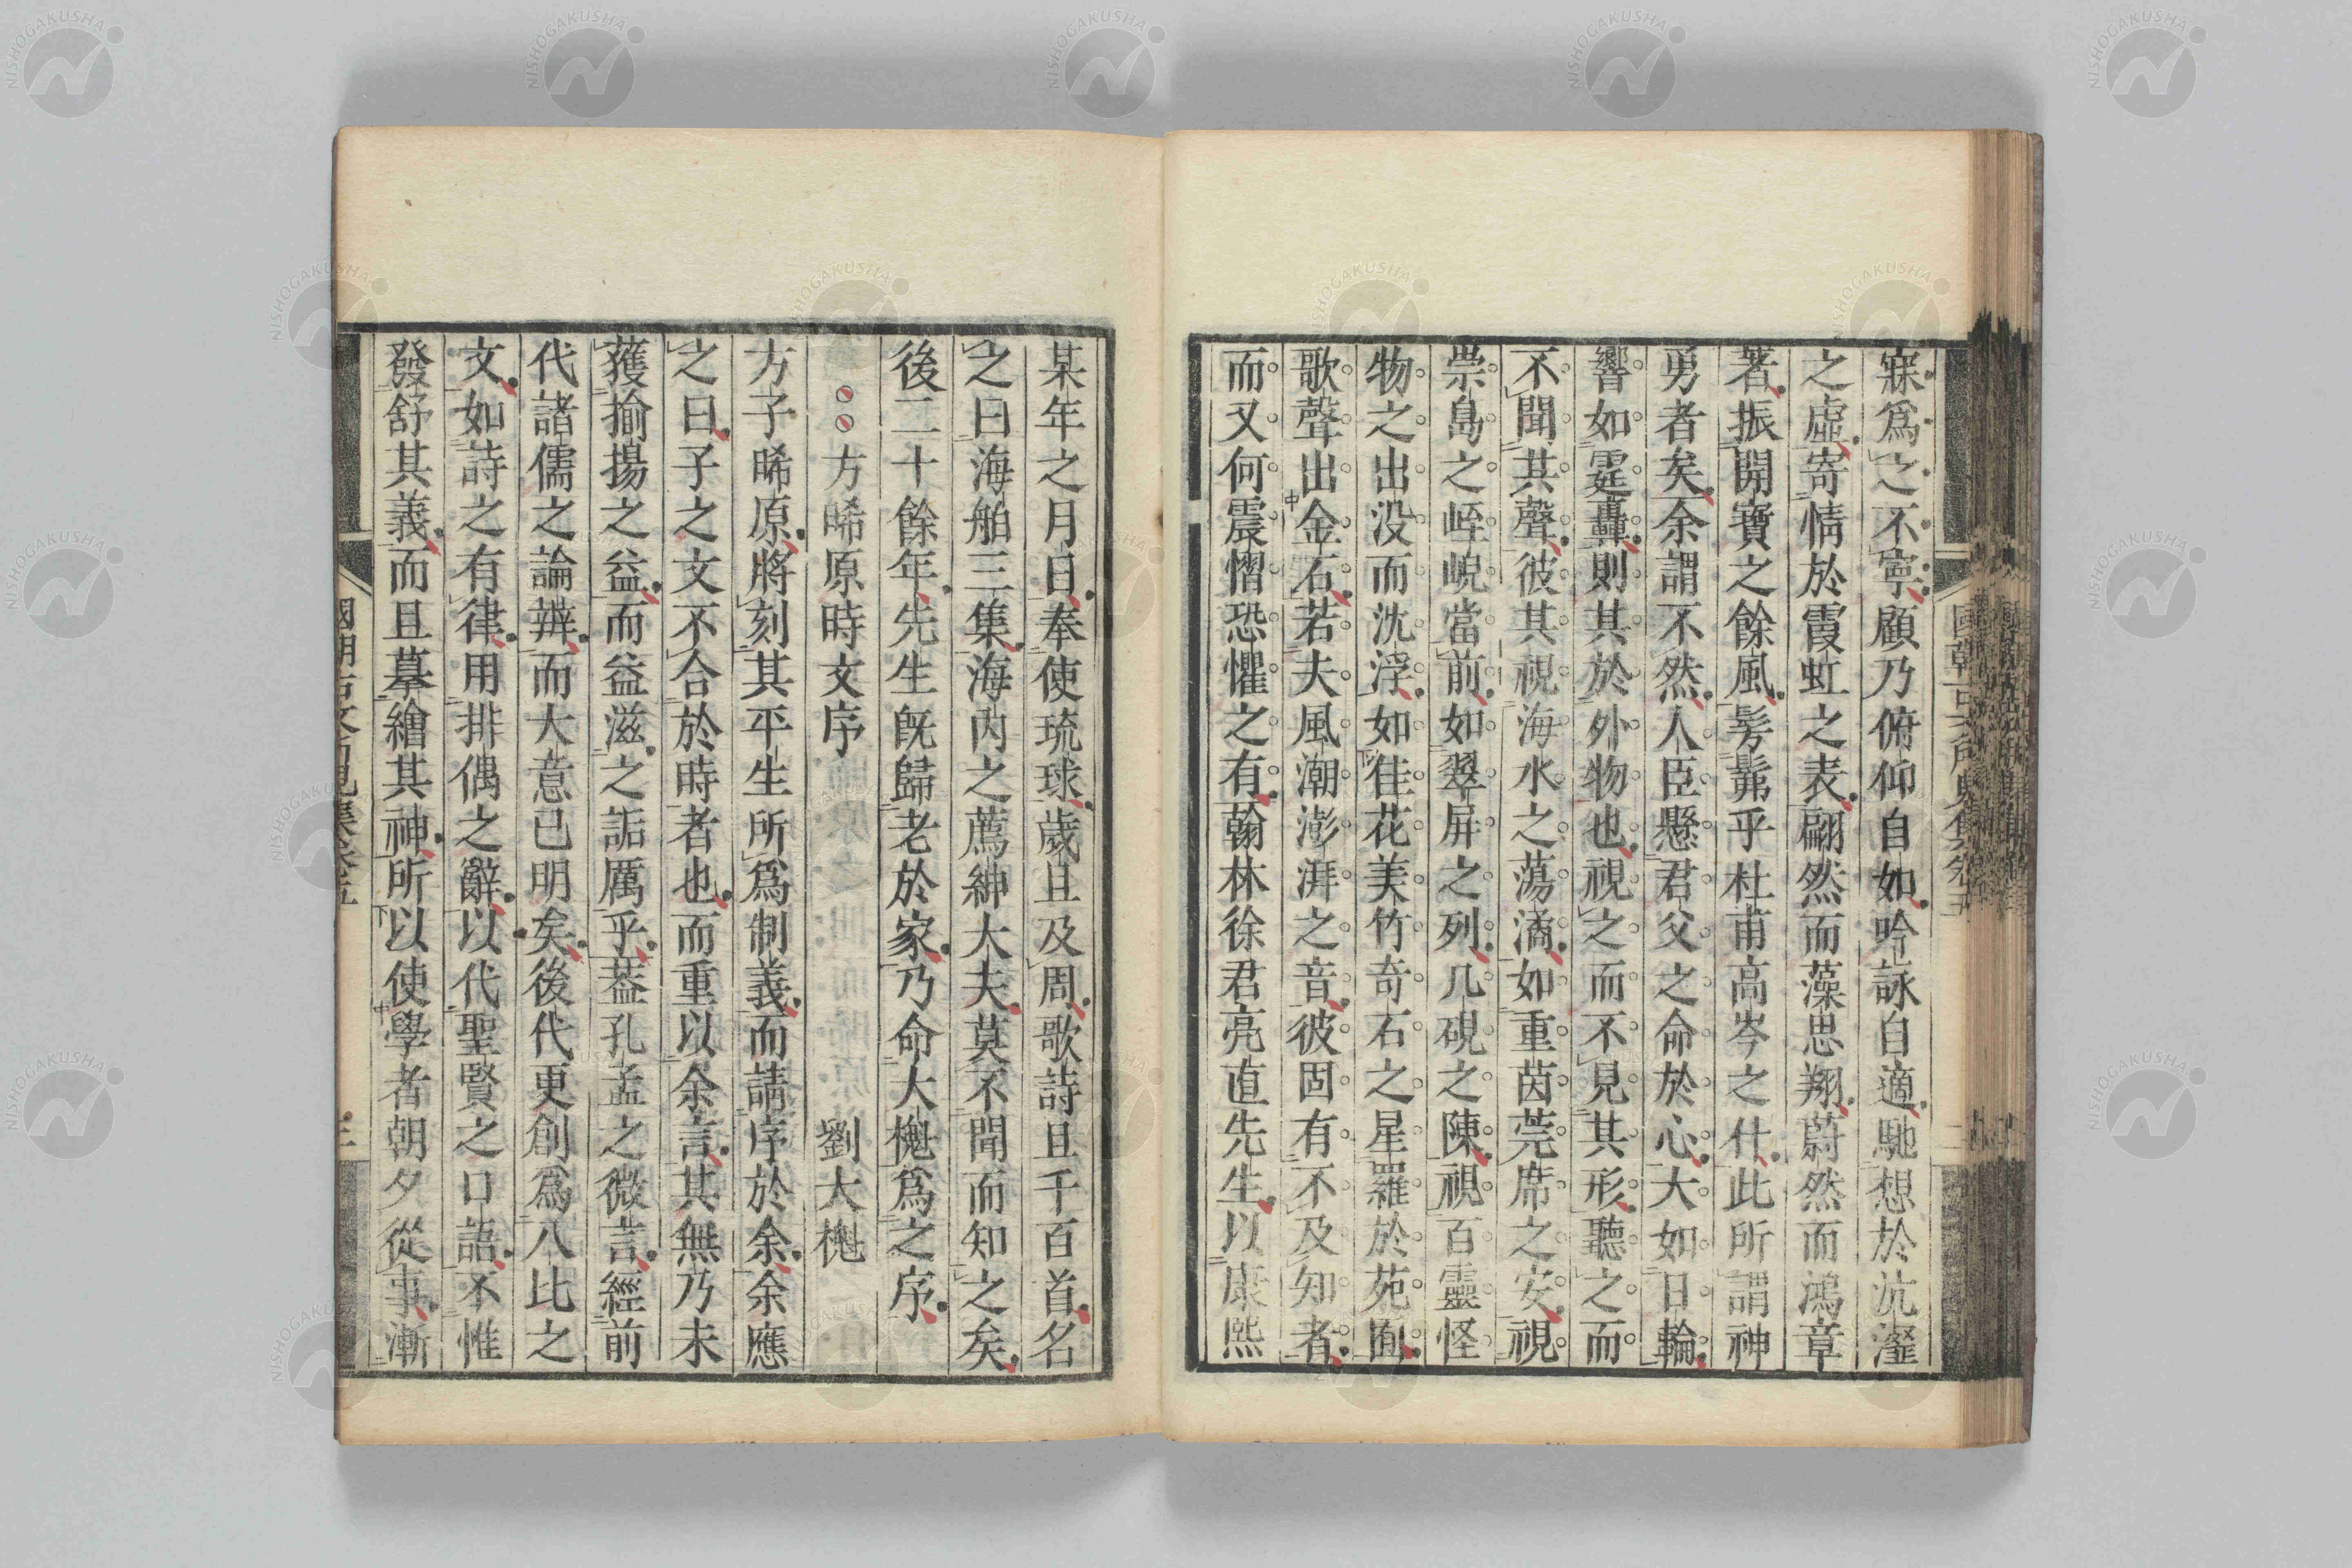 寐爲之不寧顧乃俯仰自如吟詠自適馳想於沆瀣
之虛寄情於霞虹之表翩然而藻思翔蔚然而鴻章
著振開寶之餘風髣髴乎杜甫高岑之什此所謂神
勇者矣余謂不然人臣懸君父之命於心大如日輪
響如霆轟則其於外物也視之而不見其形聽之而
不聞其聲彼其視海水之蕩潏如重茵莞席之安視
崇島之峌崲當前如翠屏之列几硯之陳視百靈怪
物之出没而沈浮如佳花美竹奇石之星羅於苑囿
歌聲出金石若夫風潮澎湃之音彼固有不及知者
而又何震慴恐懼之有翰林徐君亮直先生以康熙
某年之月日奉使琉球歲且及周歌詩且千百首名
之曰海舶三集海内之薦紳大夫莫不聞而知之矣
後二十餘年先生旣歸老於家乃命大櫆爲之序
方晞原時文序 劉大櫆
方子晞原將刻其平生所爲制義而請序於余余應
之曰子之文不合於時者也而重以余言其無乃未
獲揄揚之益而益滋之詬厲乎葢孔孟之微言經前
代諸儒之論辨而大意已明矣後代更創爲八比之
文如詩之有律用排偶之辭以代聖賢之口語不惟
發舒其義而且摹繪其神所以使學者朝夕從事漸
NISHOGAKUSHA